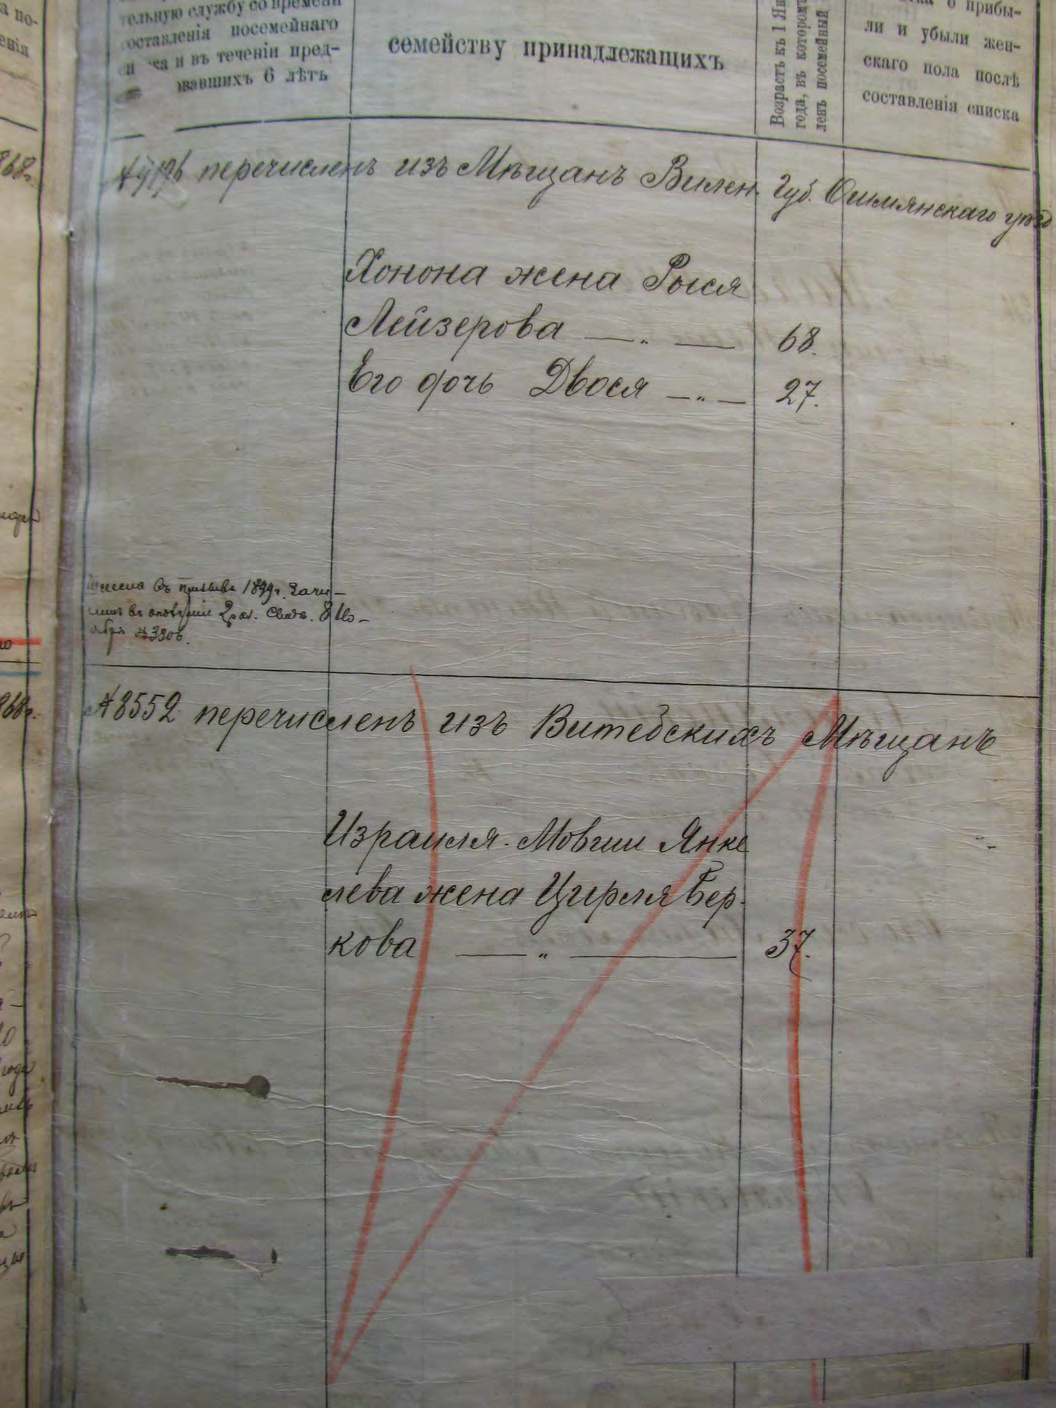 тельную службу со времени
составленія посемейнаго
и въ теченіи пред-
6 лѣтъ
семейству принадлежащихъ
Возрастъ къ 1 Ян
года, въ котором
ленъ посемейный
о прибы-
ли и убыли жен-
скаго пола послѣ
составленія списка
перечисленъ изъ Мѣщанъ Вилен. Губ. Ошмянскаго
Хонона жена Рыся
Лейзерова — „ — 68.
Его дочь Двося — „ — 27.
въ призывѣ 1899г. Зачи-
въ ополченіи 2 раз. Свид. 8 Но-
ября 3306.
868г.
№ 8552 перечисленъ изъ Витебскихъ Мѣщанъ
Израиля-Мовши Янке
лева жена Цирля Бер-
кова — „ — 37.